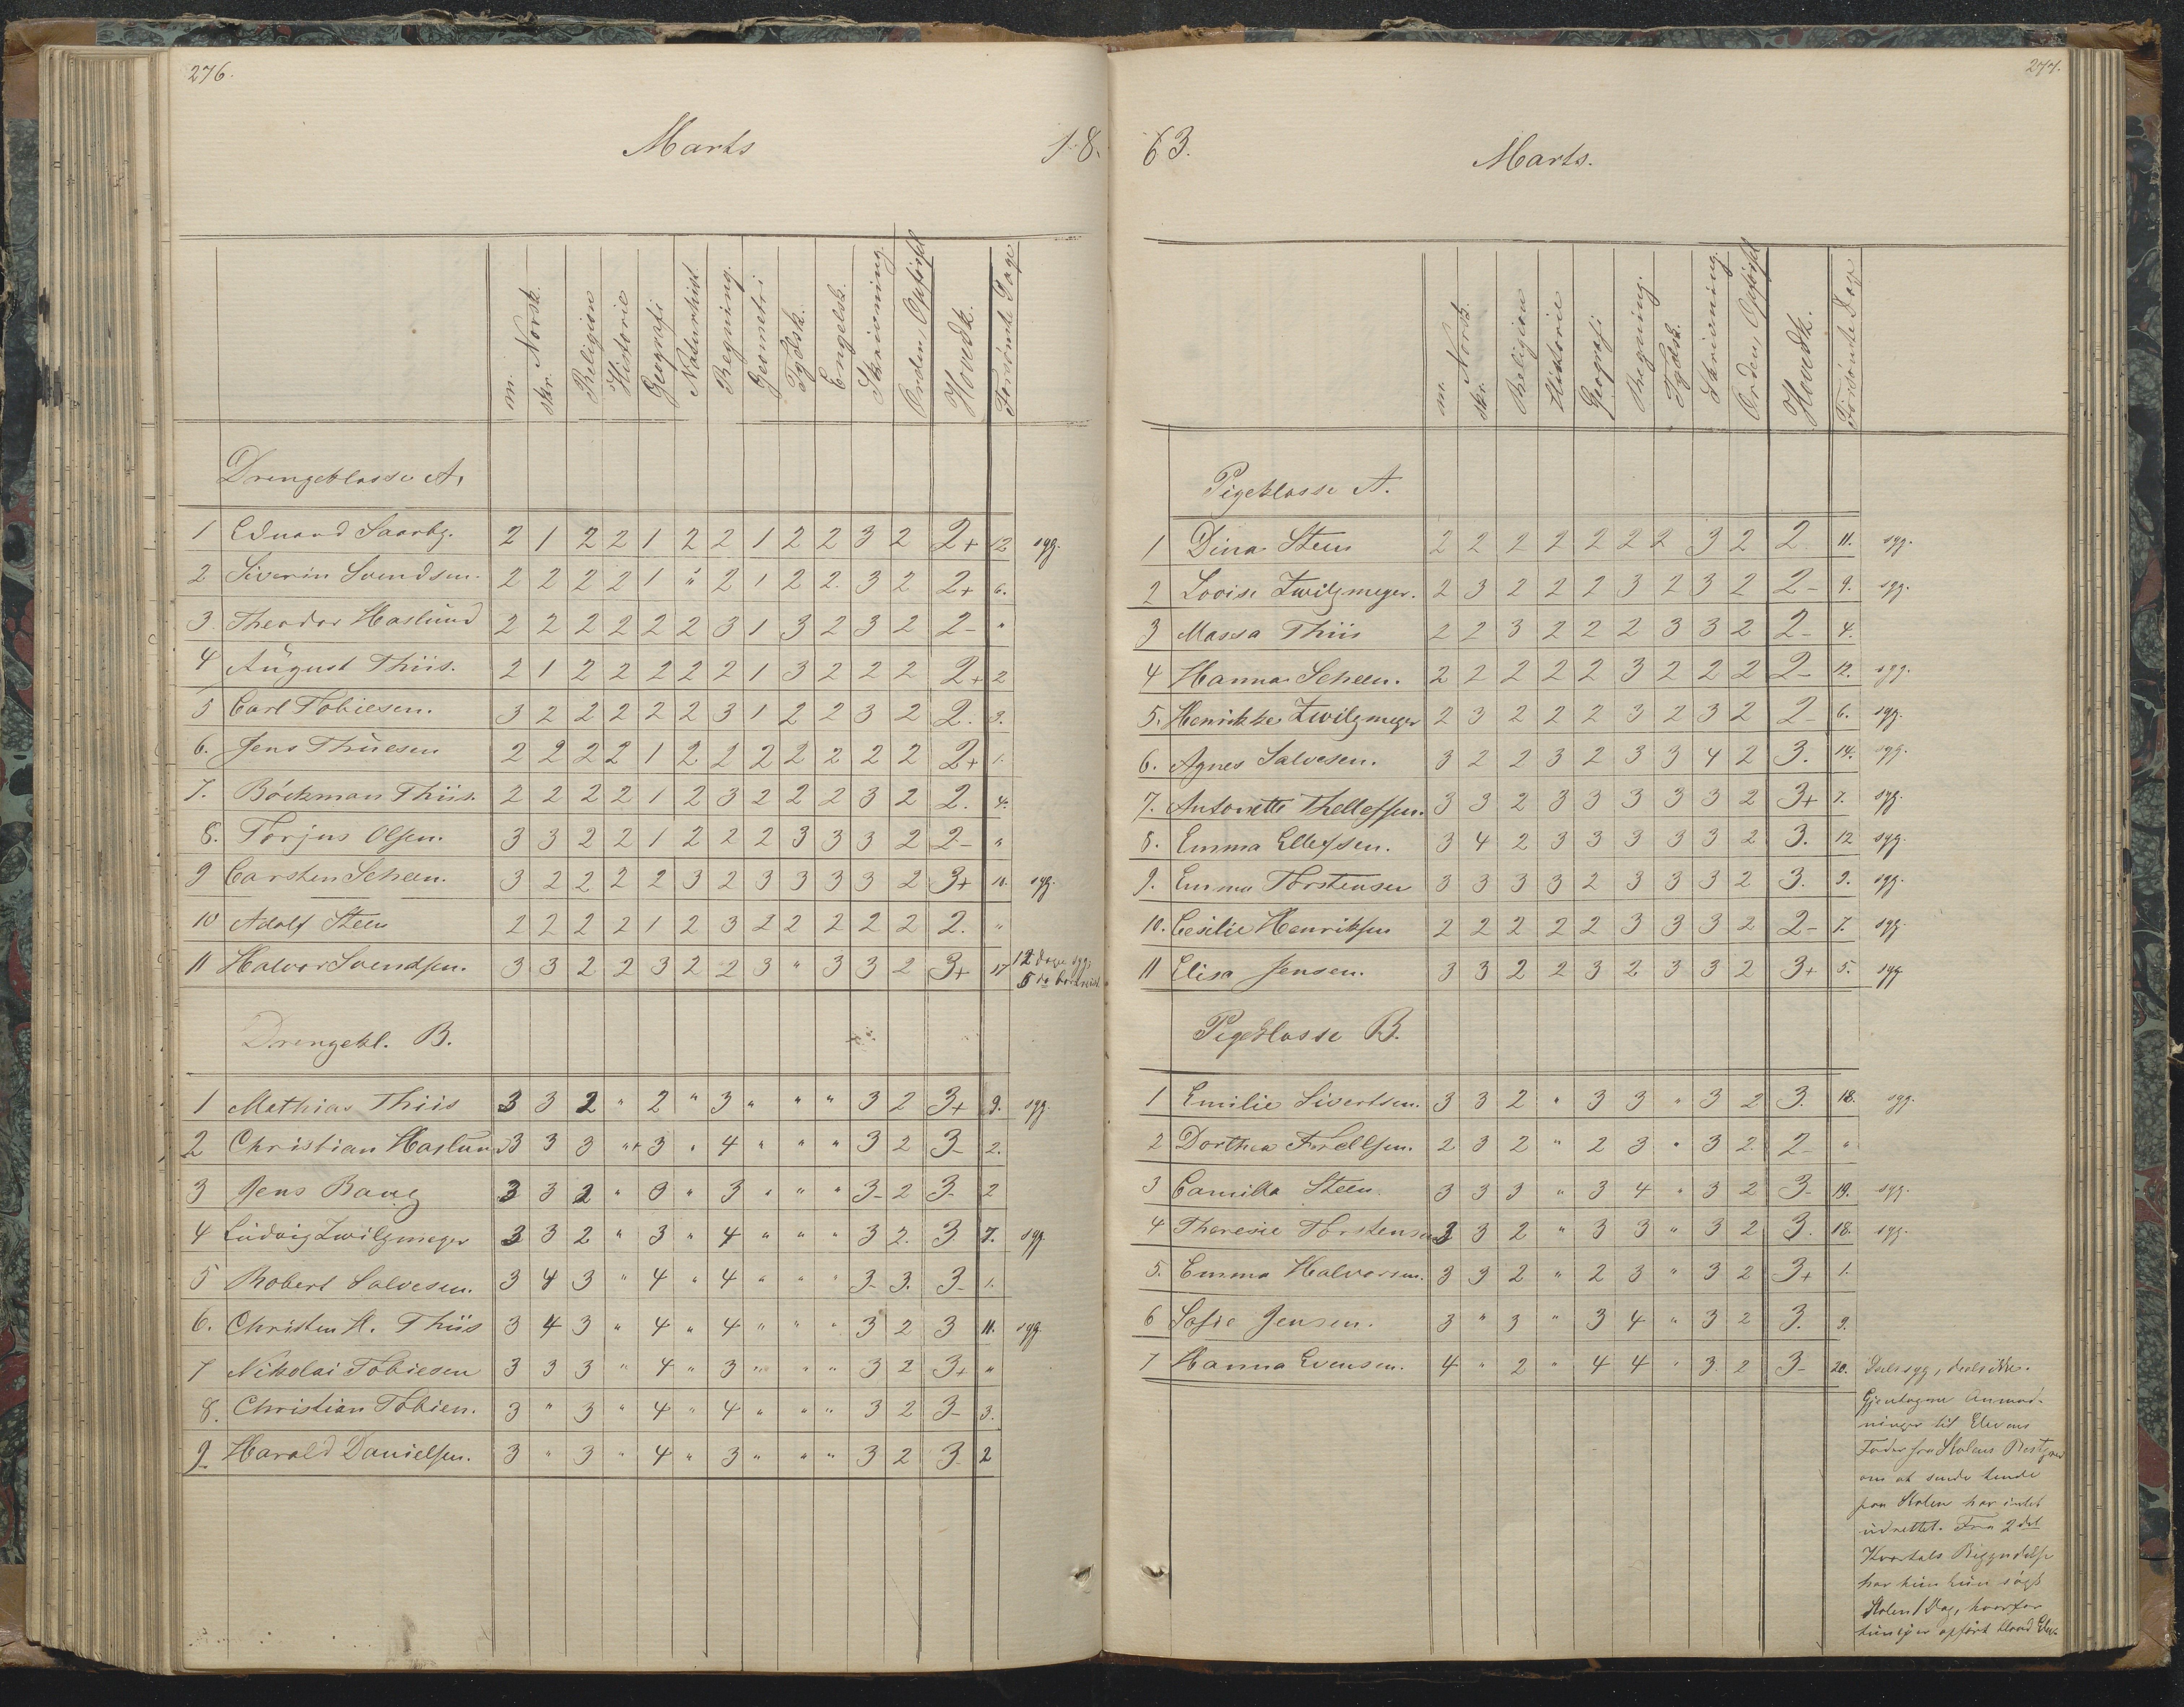 276.
Marts 18.
m. skr. Norsk. Religion Historie Geografi Naturhist Regning. Geometri Tydsk. Engelsk. Skrivning. Orden, Opførsel Hovedk. Forsømte Dage
Drengeklasse A.
1 Edvard Saarbg. 2 1 2 2 1 2 2 1 2 2 3 2 2+ 12 syg.
2 Siverin Svendsen. 2 2 2 2 1 " 2 1 2 2. 3 2 2+ 6.
3. Theodor Haslund 2 2 2 2 2 2 3 1 3 2 3 2 2- "
4 August Thiis. 2 1 2 2 2 2 2 1 3 2 2 2 2+ 2
5 Carl Tobiesen. 3 2 2 2 2 2 3 1 2 2 3 2 2. 3.
6. Jens Thuesen 2 2 2 2 1 2 2 2 2 2 2 2 2+ 1.
7. Böckman Thiis. 2 2 2 2 1 2 3 2 2 2 3 2 2. 4.
8. Torjus Olsen. 3 3 2 2 1 2 2 2 3 3 3 2 2- "
9 Carsten Scheen. 3 2 2 2 2 3 2 3 3 3 3 2 3+ 10. syg.
10 Adolf Steen 2 2 2 2 1 2 3 2 2 2 2 2 2. "
11 Halvor Svendsen. 3 3 2 2 3 2 2 3 " 3 3 2 3+ 17 12 dage syg,
5 do bortreist.
Drengekl. B.
1 Mathias Thiis 3 3 2 " 2 " 3 " " " 3 2 3+ 9. syg.
2 Christian Haslund 3 3 3 " 3 " 4 " " " 3 2 3- 2.
3 Jens Bang 3 3 2 " 3 " 3 " " " 3- 2 3- 2
4 Ludvig Zwilgmeyer 3 3 2 " 3 " 4 " " " 3 2. 3. 7. syg
5 Robert Salvesen. 3 4 3 " 4 " 4 " " " 3- 3. 3- 1.
6. Christen H. Thiis 3 4 3 " 4 " 4 " " " 3 2 3 11. syg.
7 Nikolai Tobiesen 3 3 3 " 4 " 3 " " " 3 2 3+ "
8. Christian Tobien. 3 " 3 " 4 " 4 " " " 3 2 3- 3.
9 Harald Danielsen. 3 " 3 " 4 " 3 " " " 3 2 3. 2
277.
63. Marts.
m. skr. Norsk. Religion Historie Geografi Regning. Tydsk. Skrivning. Orden, Opførsel Hovedk. Forsømte Dage
Pigeklasse A.
1 Dina Steen 2 2 2 2 2 2 2 3 2 2 11. syg.
2 Lovise Zwilgmeyer. 2 3 2 2 2 3 2 3 2 2- 9. syg.
3 Massa Thiis 2 2 3 2 2 2 3 3 2 2- 4.
4 Hanna Scheen. 2 2 2 2 2 3 2 2 2 2- 12. syg.
5. Henrikke Zwilgmeyer 2 3 2 2 2 3 2 3 2 2- 6. syg.
6. Agnes Salvesen. 3 2 2 3 2 3 3 4 2 3. 14. syg.
7. Antonette Thellefsen. 3 3 2 3 3 3 3 3 2 3+ 7. syg.
8. Emma Ellefsen. 3 4 2 3 3 3 3 3 2 3. 12 syg.
9. Emma Torstensen 3 3 3 3 2 3 3 3 2 3. 9. syg.
10. Cesilie Henriksen 2 2 2 2 2 3 3 3 2 2- 7. syg.
11 Elisa Jensen. 3 3 2 2 3 2 3 3 2 3+ 5. syg
Pigeklasse B.
1 Emilie Sivertsen. 3 3 2 " 3 3 " 3 2 3. 18. syg.
2 Dorthea Terellsen. 2 3 2 " 2 3 " 3 2. 2- "
3 Camilla Steen. 3 3 3 " 3 4 " 3 2 3- 19. syg.
4 Theresie Torstensen 3 3 2 " 3 3 " 3 2 3. 18. syg.
5. Emma Halvorsen. 3 3 2 " 2 3 " 3 2 3+ 1.
6 Sofie Jensen. 3 " 3 " 3 4 " 3 2 3. 9.
7 Hanna Evensen. 4 " 2 " 4 4 " 3 2 3- 20. Dels syg, dels ikke.
Gjentagne Anmod-
ninger til Elevens
Fader fra Skolens Bestyrer
om at sende hende
paa Skolen har intet
udrettet. Fra 2det
Kvartals Begyndelse
har hun kun søgt
Skolen 1 Dag, hvorfor
hun ei er opført blandt Elev.